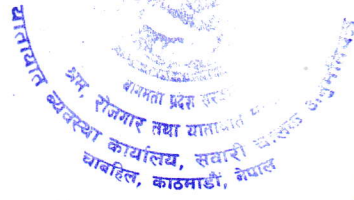 बागमती प्रदेश सरकार
श्रम, रोजगार तथा यातायात
यातायात व्यवस्था कार्यालय, सवारी चालक अनुमतिपत्र
चाबहिल, काठमाडौं, नेपाल